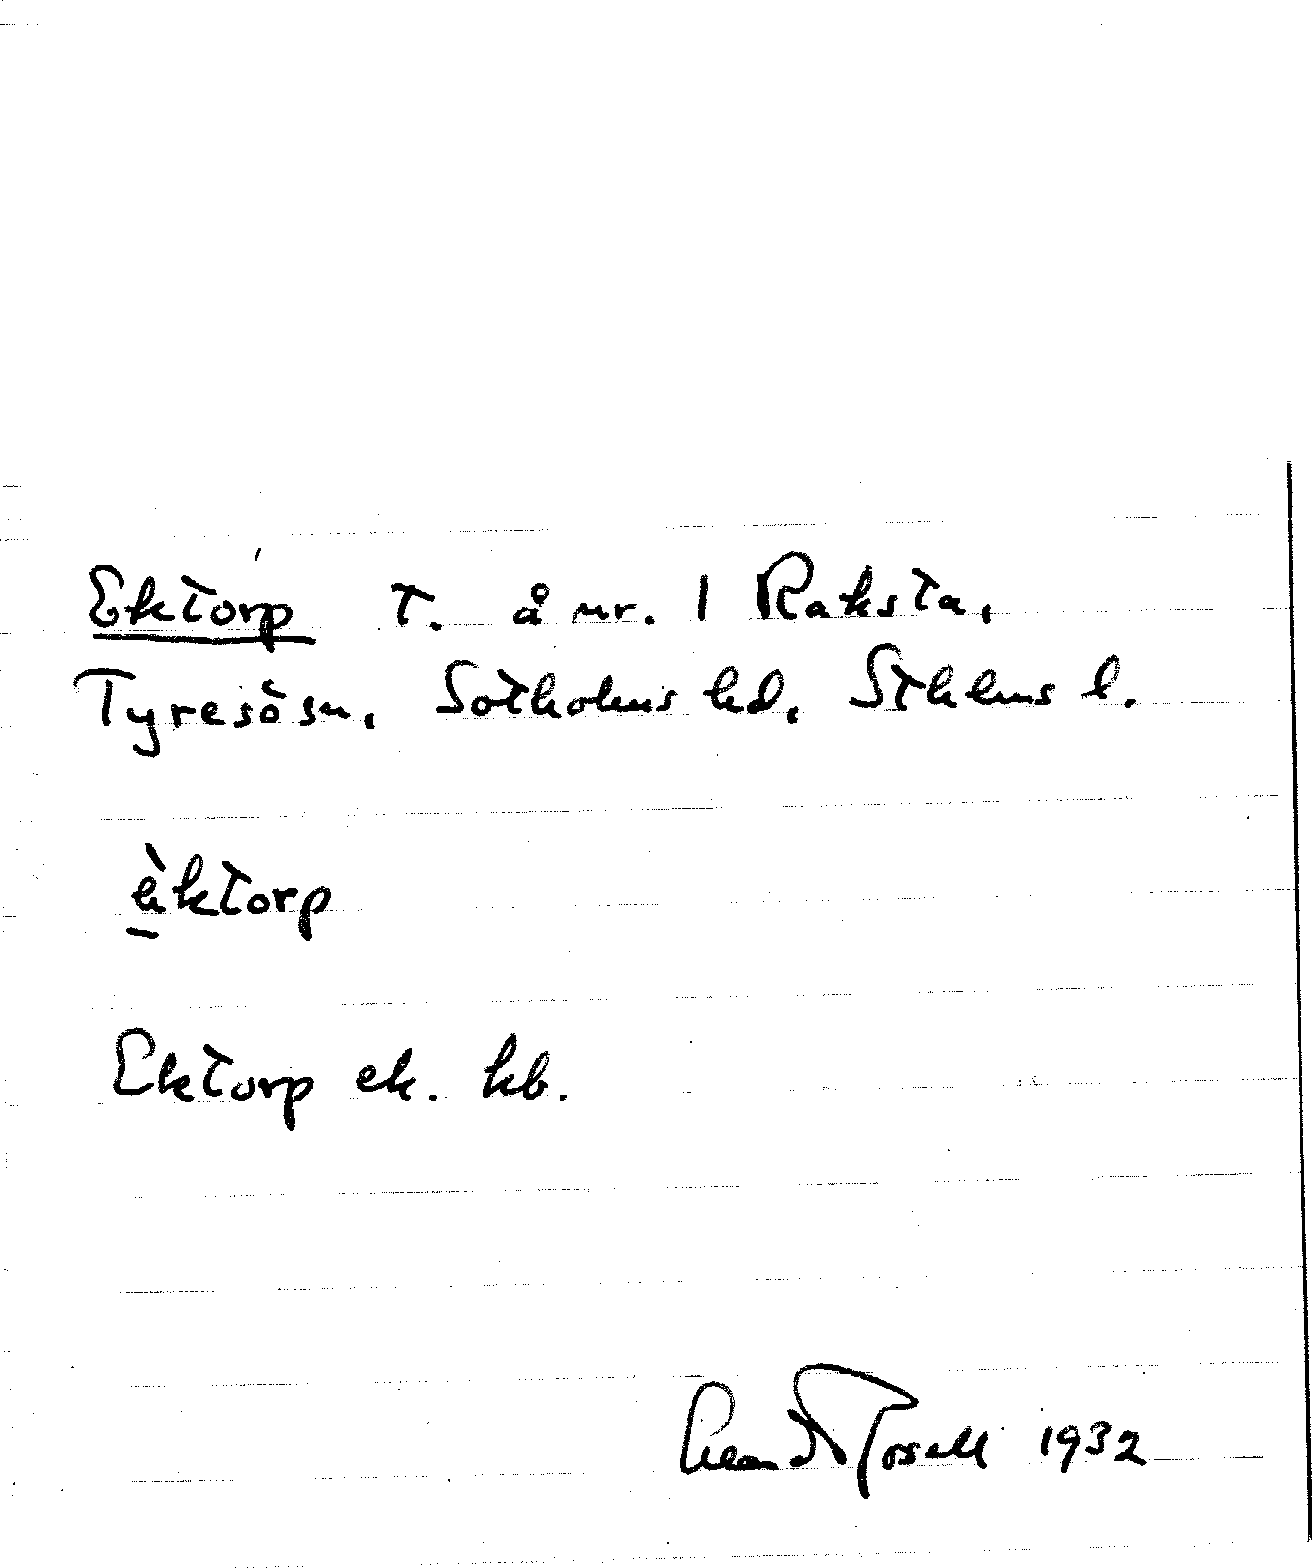 Ektorp T. å nr. 1 Raksta,
Tyresö sn, Sotholms hd, Sthlms l.
èktorp
Ektorp ek. kb.
1932